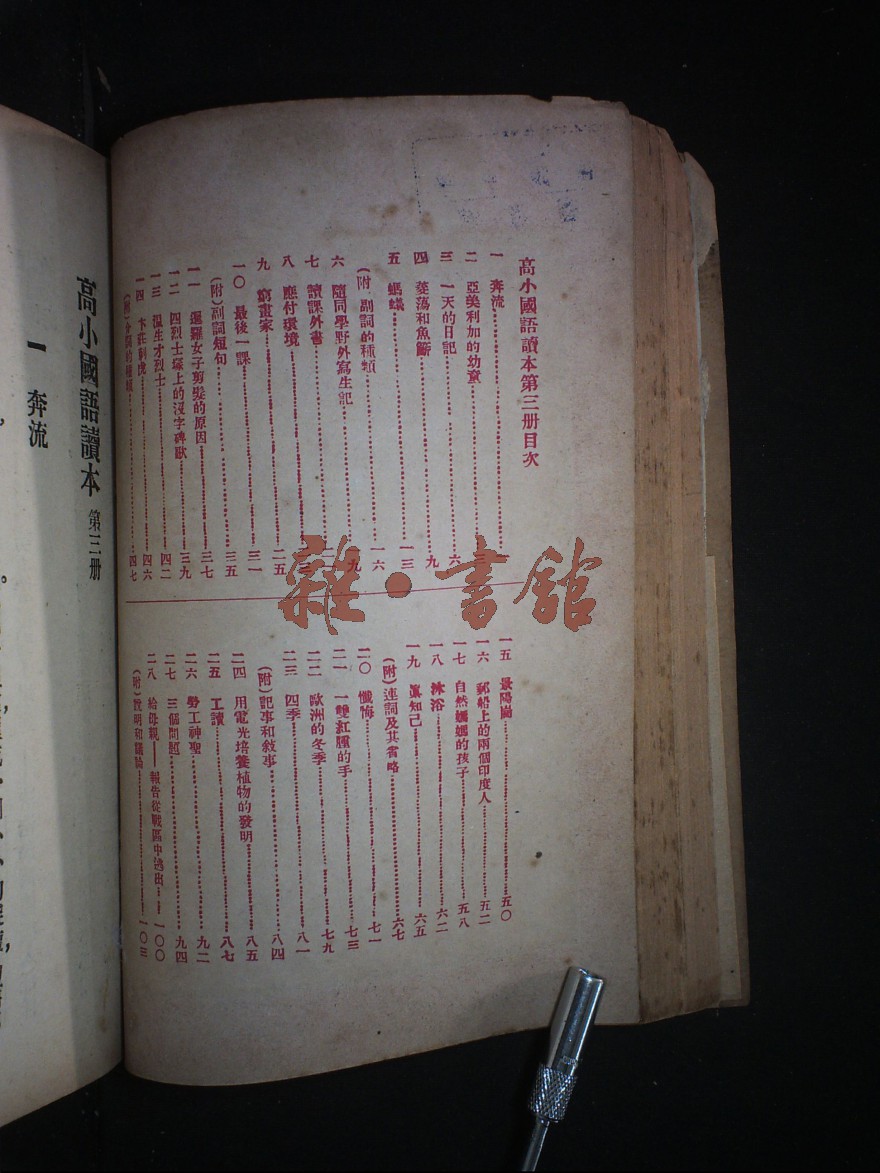 高小國語讀本第三册目次
一 奔流
二 亞美利加的幼童
三 一天的日記 六
四 菱蕩和魚斷 九
五 螞蟻 一三
(附)副詞的種類 一六
六 隨同學野外寫生記
七 讀課外書
八 應付環境
九 窮畫家 二五
一〇 最後一課 三一
(附)副詞短句 三五
一一 暹羅女子剪髮的原因 三七
一二 四烈士塚上的沒字碑歌 三九
一三 温生才烈士 四二
一四 卞莊刺虎 四六
四七
一五 景陽崗 五〇
一六 郵船上的兩個印度人 五二
一七 自然媽媽的孩子 五八
一八 沐浴 六二
一九 眞知己 六五
(附)連詞及其省略 六七
二〇 懺悔 七一
二一 一雙紅腫的手 七三
二二 歐洲的冬季 七九
二三 四季 八一
(附)記事和敘事 八四
二四 用電光培養植物的發明 八五
二五 工讀 八七
二六 勞工神聖 九二
二七 三個問題 九四
二八 給母親——報告從戰區中逃出 一〇〇
(附)說明和議論 一〇三
高小國語讀本 第三册
一 奔流
雜·書館